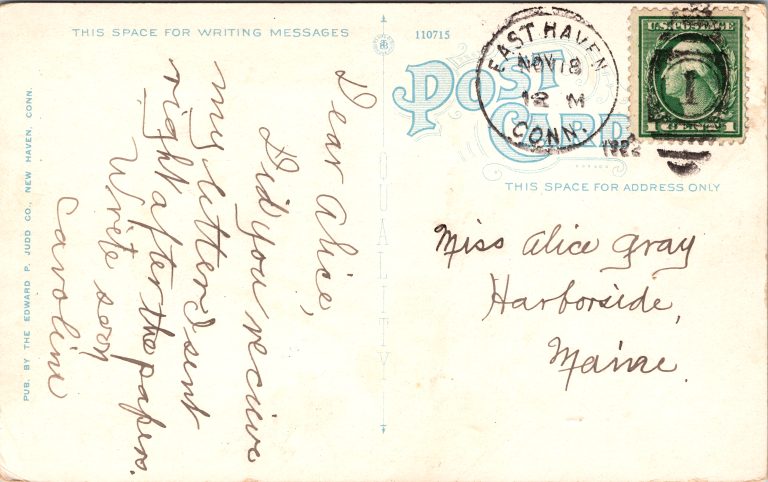 THIS SPACE FOR WRITING MESSAGES
110715
POST
CARD
EAST HAVEN
NOV 18
12 M
CONN.
1922
U.S. POSTAGE
1
1 CENTS 1
THIS SPACE FOR ADDRESS ONLY
QUALITY
PUB. BY THE EDWARD P. JUDD CO., NEW HAVEN, CONN.
Dear Alice,
Did you recieve
my letter I sent
right after the papers.
Write soon
Caroline
Miss Alice Gray
Harborside,
Maine.